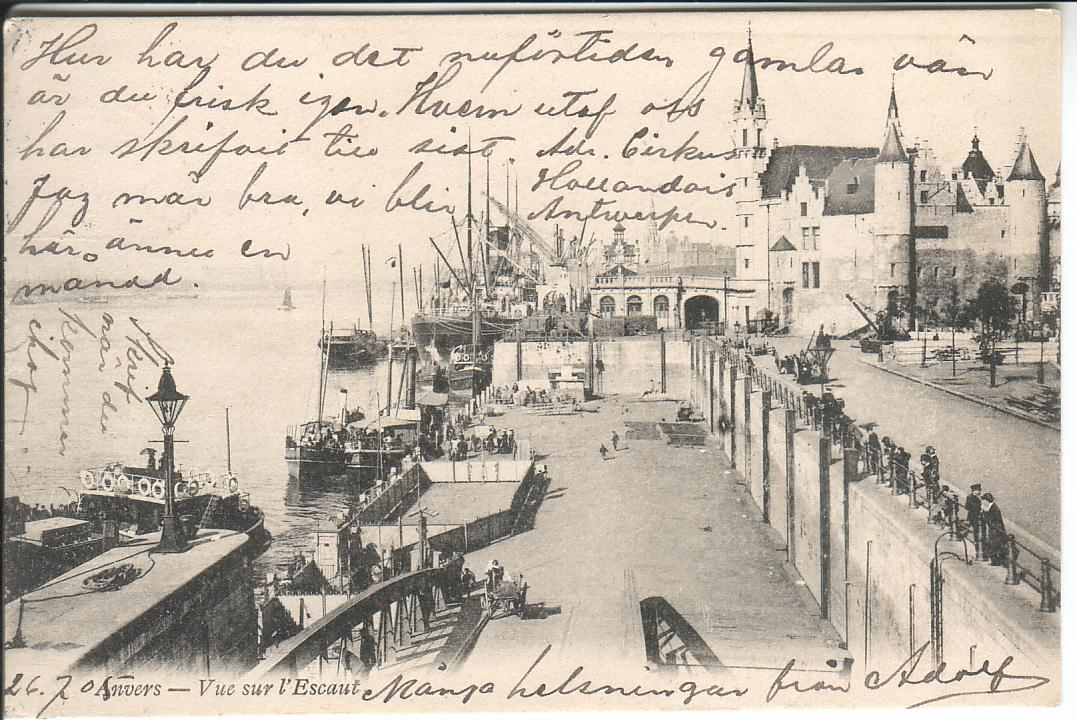 Hur har du det nuförtiden gamla vän
är du frisk igen. Hvem utaf oss
har skrifvit till sist Adr. Cirkus
Jag mår bra, vi blir Hollandais
här ännu en Antwerpen.
månad.
Skrif
när du
kommer
ihog.
26.7.05
Anvers — Vue sur l'Escaut
Många helsningar från Adolf